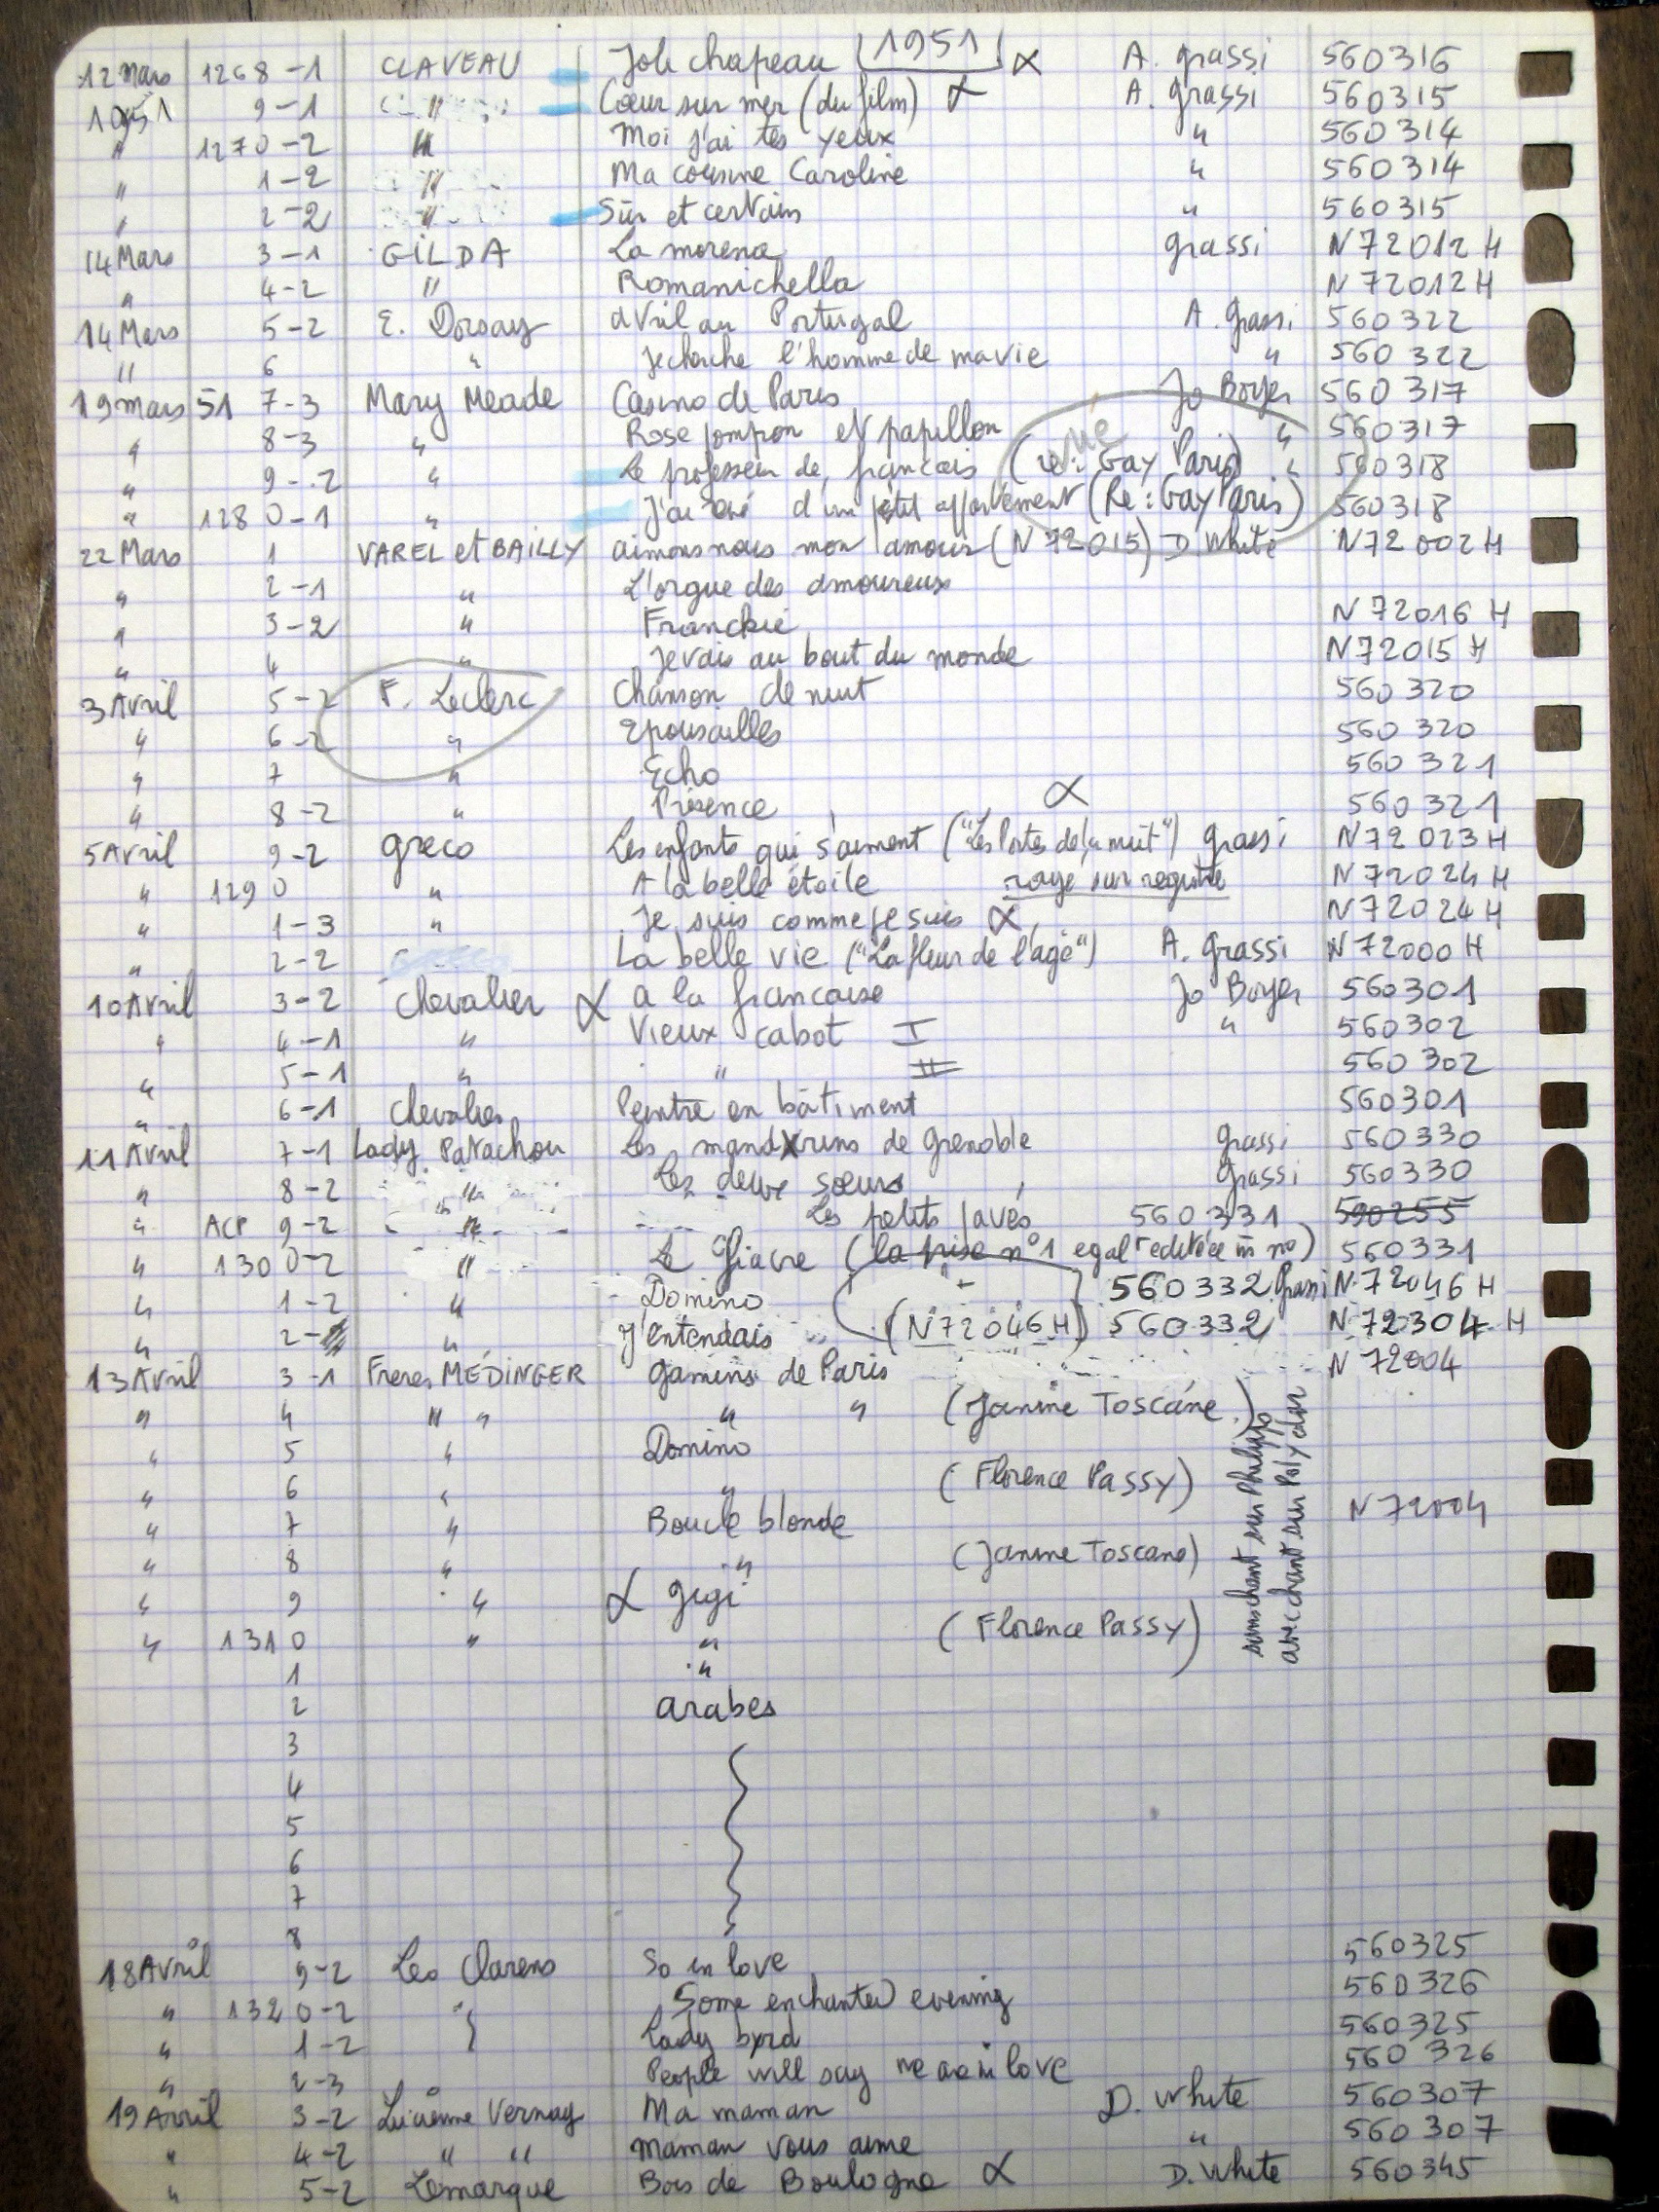 12 Mars 1268-1 CLAVEAU Joli chapeau 1951 α A. Grassi 560316
1951 9-1 " Cœur sur mer (du film) α A. Grassi 560315
" 1270-2 " Moi j'ai tes yeux " 560314
" 1-2 " Ma cousine Caroline " 560314
" 2-2 " Sûr et certain " 560315
14 Mars 3-1 GILDA La morena grassi N72012H
" 4-2 " Romanichella N72012H
14 Mars 5-2 E. Dorsay avril au Portugal A. Grassi 560322
" 6 " Je cherche l'homme de ma vie " 560322
19 mars 51 7-3 Mary Meade Casino de Paris Jo Boyer 560317
" 8-3 " Rose pompon et papillon " 560317
" 9-2 " Le professeur de francais (re: Gay Paris) " 560318
" 1280-1 " J'ai rêvé d'un petit appartement (Re: Gay Paris) 560318
22 Mars 1 VAREL et BAILLY aimons nous mon amour (N72015) D. White N72002H
" 2-1 " L'orgue des amoureux
" 3-2 " Franckie N72016H
" 4 " Je vais au bout du monde N72015H
3 Avril 5-2 F. Leclerc Chanson de nuit 560320
" 6-2 " Epousailles 560320
" 7 " Echo 560321
" 8-2 " Présence α 560321
5 Avril 9-2 greco Les enfants qui s'aiment ("Les Portes de la nuit") grassi N72023H
" 1290 " A la belle étoile rayé sur registre N72024H
" 1-3 " Je suis comme je suis α N72024H
" 2-2 La belle vie ("La fleur de l'age") A. Grassi N72000H
10 Avril 3-2 Chevalier α a la francaise Jo Boyer 560301
" 4-1 " Vieux cabot I " 560302
" 5-1 " " II 560302
" 6-1 Chevalier Peintre en bâtiment 560301
11 Avril 7-1 Lady Patachou Les mandarins de Grenoble grassi 560330
" 8-2 " Les deux sœurs grassi 560330
" ACP 9-2 " Les petits pavés 560331 590255
" 1300-2 " Le Fiacre (la prise n°1 egalt editée m no) 560331
" 1-2 " Domino 560332 Grassi N72046H
" 2- " J'entendais (N72046H) 560332 N72304H
13 Avril 3-1 Freres MÉDINGER gamins de Paris N72004
" 4 " " " " (Janine Toscane)
" 5 " Domino
" 6 " " (Florence Passy)
" 7 " Boucle blonde N72004
" 8 " " (Janine Toscane)
" 9 " α gigi
" 1310 " " (Florence Passy)
sans chant sur Philips
avec chant sur Polydor
1 "
2 arabes
3
4
5
6
7
8
18 Avril 9-2 Les Clarens So in love 560325
" 1320-2 " Some enchanted evening 560326
" 1-2 Lady byrd 560325
" 2-3 People will say we are in love 560326
19 Avril 3-2 Lucienne Vernay Ma maman D. White 560307
" 4-2 " " Maman vous aime " 560307
" 5-2 Lemarque Bois de Boulogne α D. White 560345